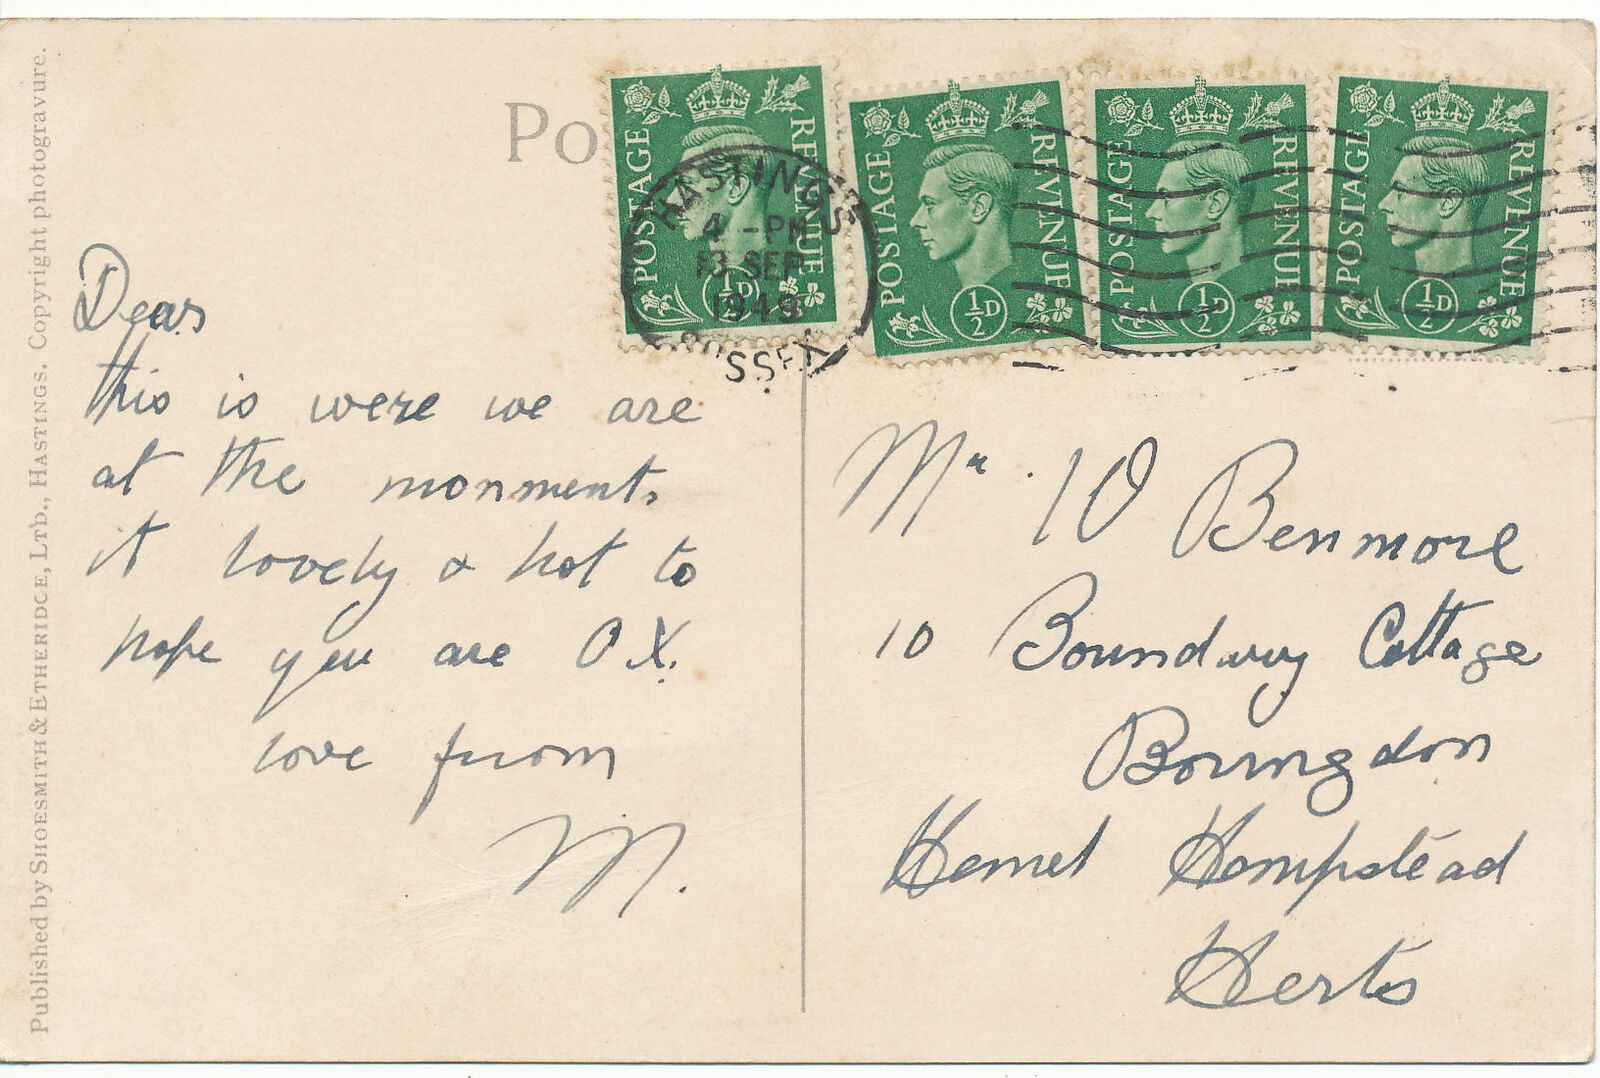 Published by SHOESMITH & ETHERIDGE, LTD., HASTINGS. Copyright photogravure.
Po
POSTAGE REVENUE ½D
POSTAGE REVENUE ½D
POSTAGE REVENUE ½D
POSTAGE REVENUE ½D
HASTINGS
4 - PM
13 SEP
1949
SUSSEX
Dear
this is were we are
at the monment.
it lovely & hot to
hope you are O K.
love from
M.
Mr Benmore
10 Boundary Cottage
Boringdon
Hemel Hempstead
Herts